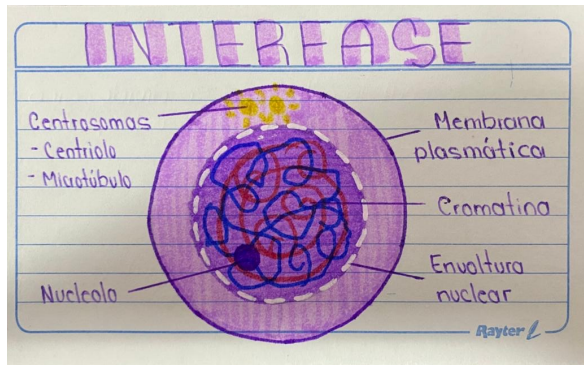 INTERFASE
Centrosomas
- Centriolo
- Microtúbulo
Nucleolo
Membrana
plasmática
Cromatina
Envoltura
nuclear
Rayter